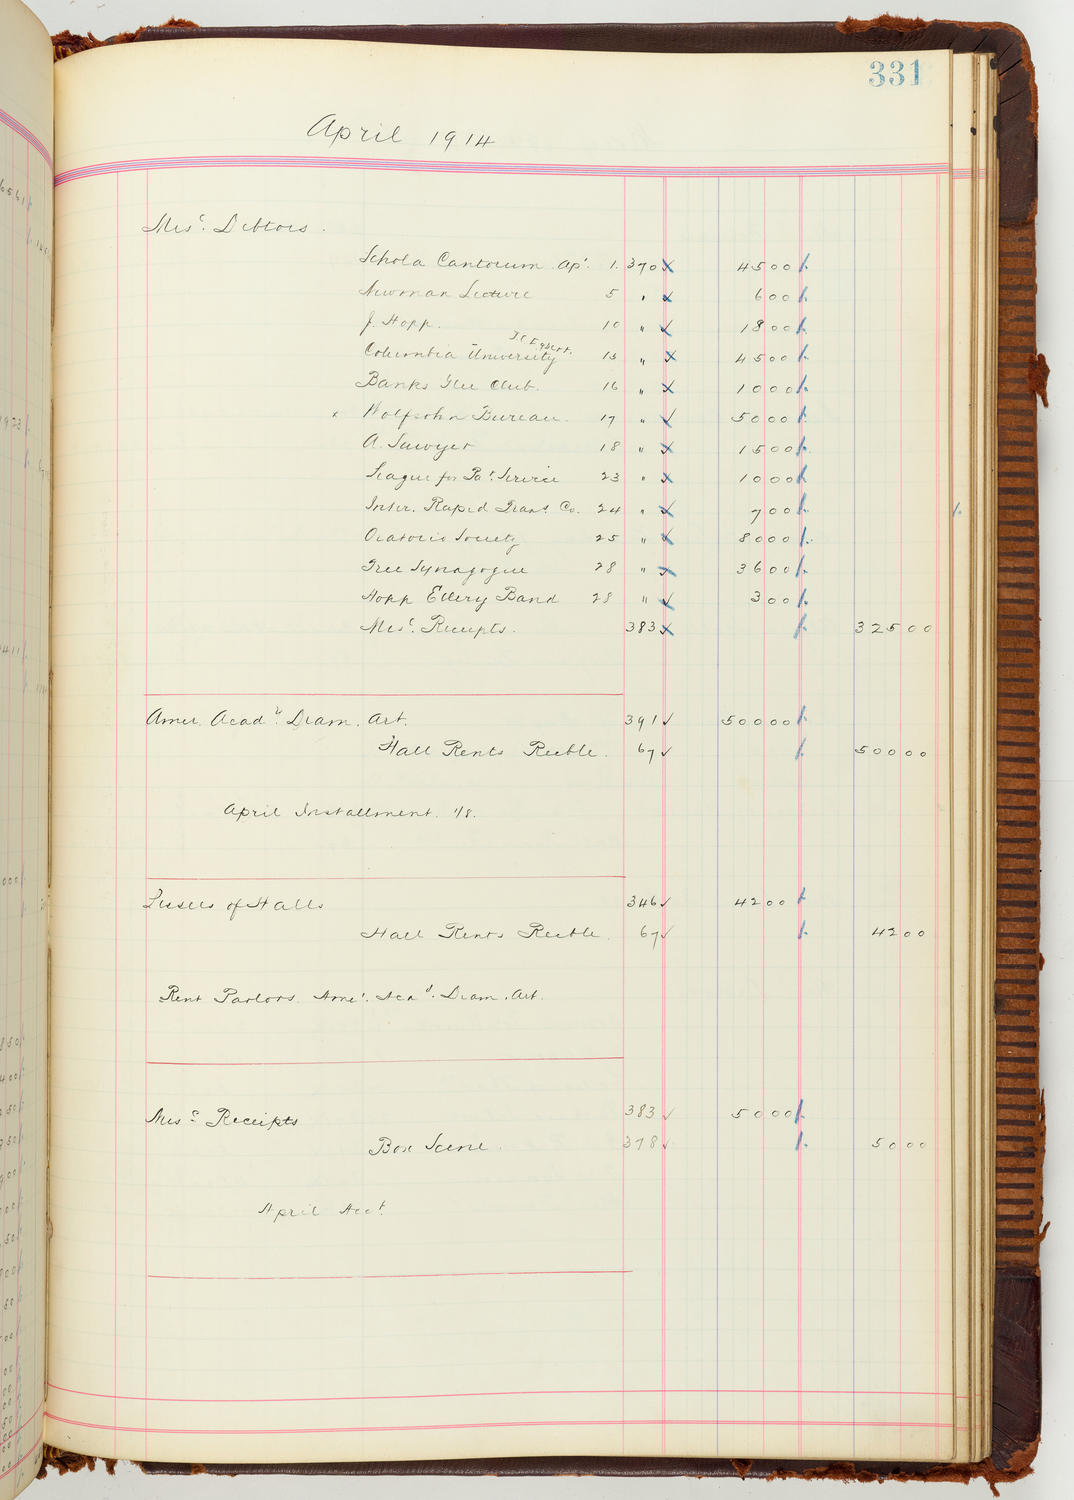 331
April 1914
Misc. Debtors.
Schola Cantorum Apr. 1. 370 4500
Newman Lecture 5 " 600
J. Hopp. 10 " 1800
Columbia University 15 " 4500
Banks Glee Club. 16 " 1000
Wolfsohn Bureau. 17 " 5000
A. Sawyer 18 " 1500
League for Pol. Service 23 " 1000
Inter. Rapid Trans. Co. 24 " 700
Oratorio Society 25 " 8000
Free Synagogue 28 " 3600
Hopp Ellery Band 28 " 300
Misc. Receipts. 383 32500
Amer. Acady. Dram. Art. 391 50000
Hall Rents Recble. 67 50000
April Installment. 1/8.
Lessees of Halls 346 4200
Hall Rents Recble. 67 4200
Rent Parlors. Amer. Acad. Dram. Art.
Misc. Receipts 383 5000
Box Scene. 378 5000
April Acct.